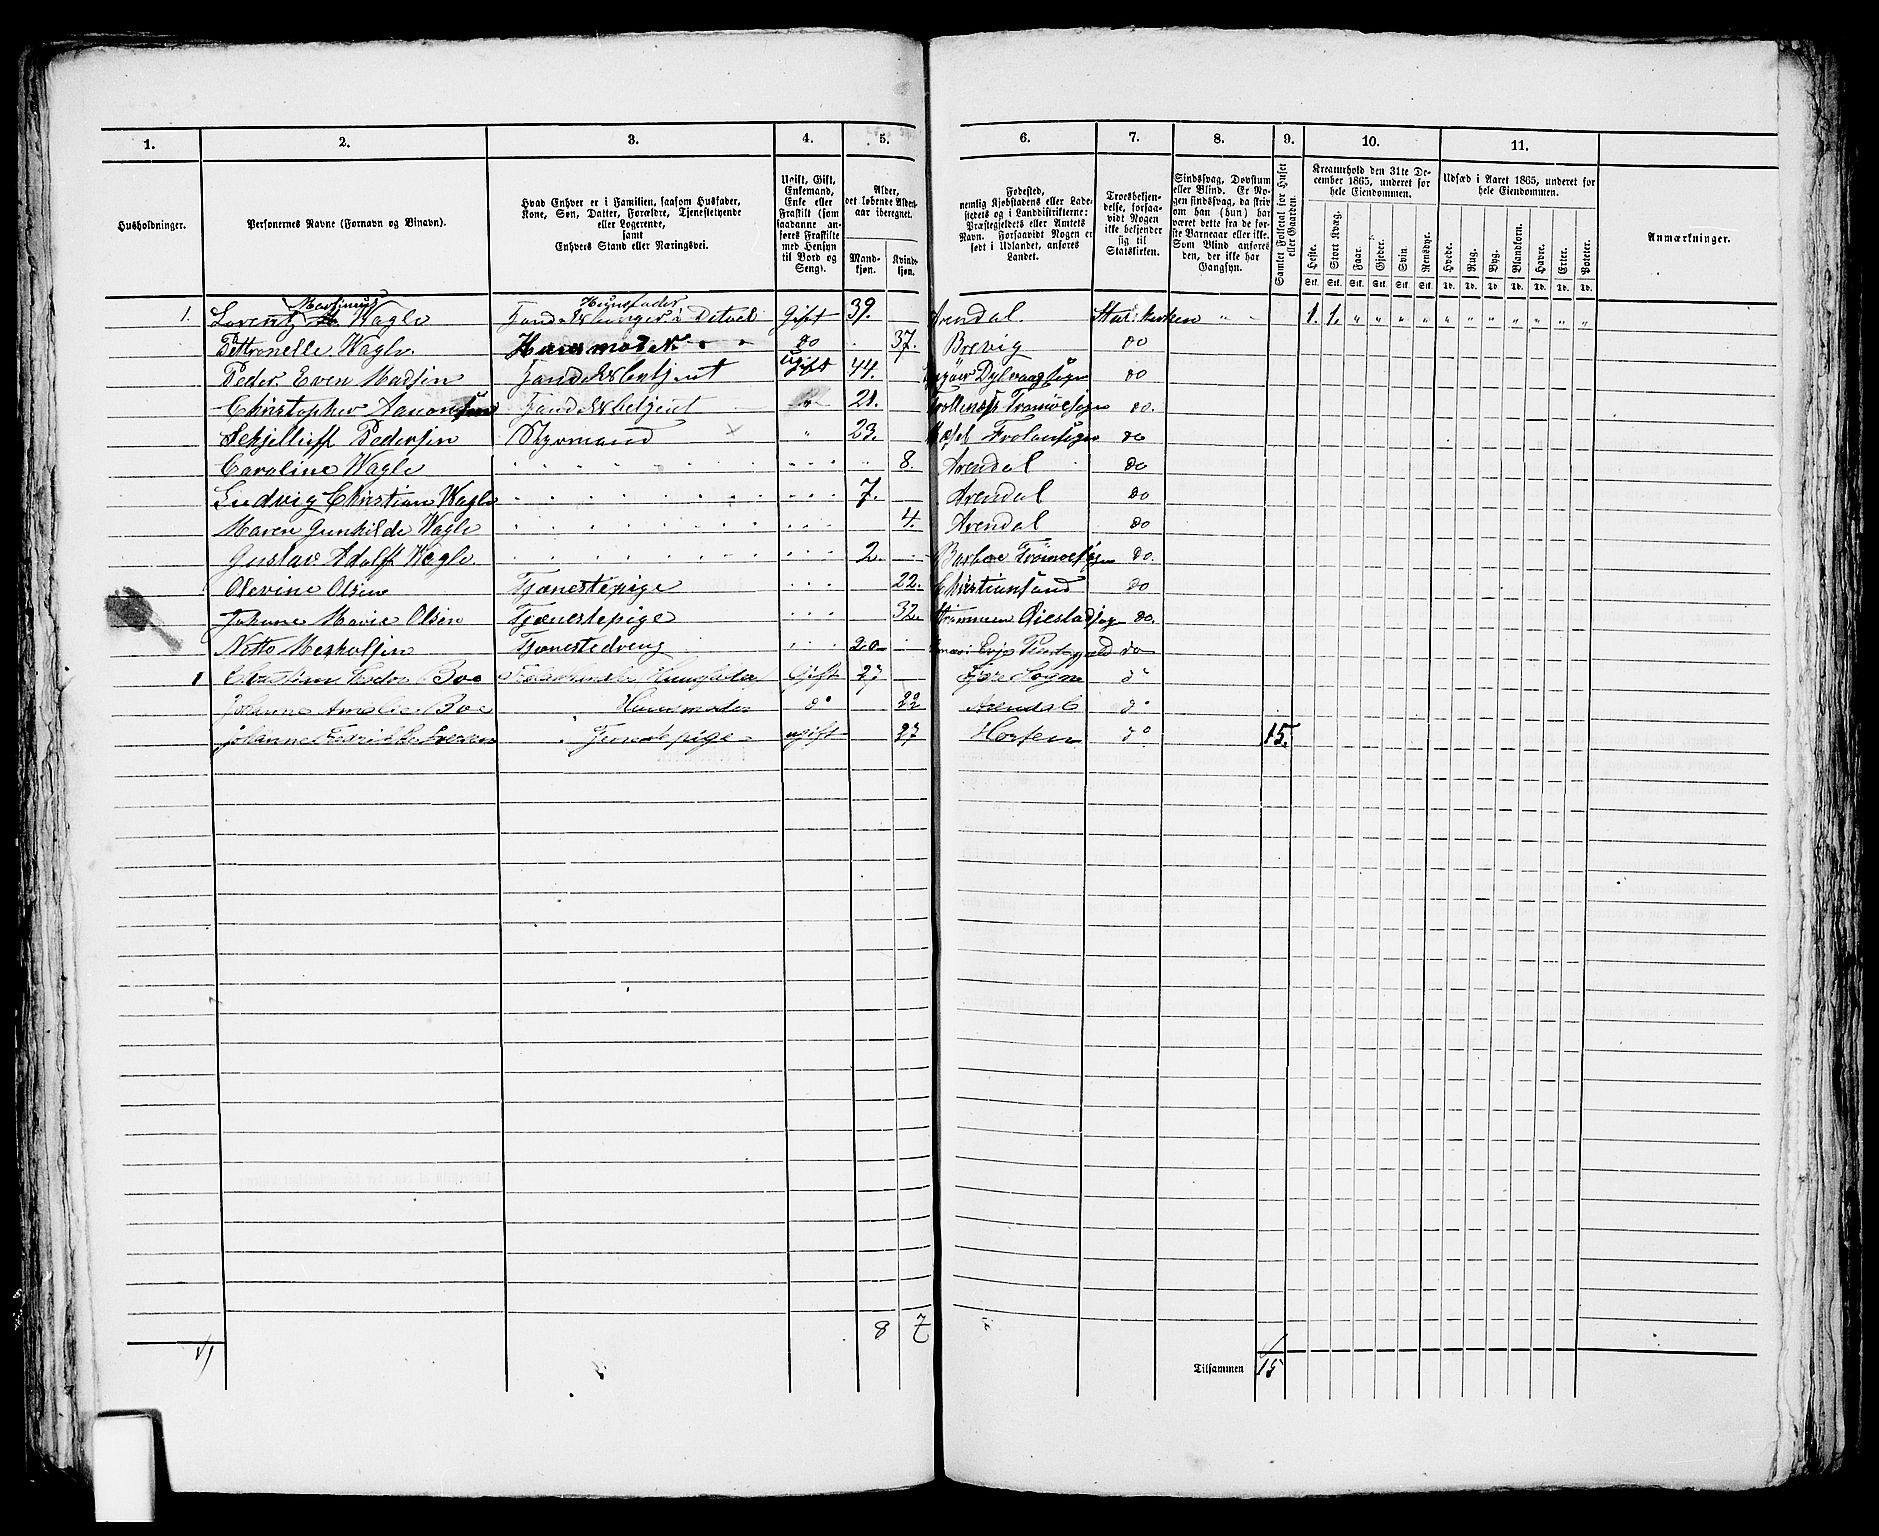 1. 2. 3. 4. 5. 6. 7. 8. 9. 10. 11.
Husholdninger.
Personernes Navne (Fornavn og Binavn).
Hvad Enhver er i Familien, saasom Husfader, Kone, Søn, Datter, Forældre, Tjenestetyende eller Logerende, samt Enhvers Stand eller Næringsvei.
Ugift, Gift, Enkemand, Enke eller Fraskilt (som saadanne anføres Fraskilte med Hensyn til Bord og Seng).
Alder, det løbende Alders-aar iberegnet.
Mand-kjøn. Kvind-kjøn.
Fødested, nemlig Kjøbstadens eller Ladestedets og i Landdistrikterne: Præstegjeldets eller Amtets Navn. Forsaavidt Nogen er født i Udlandet, anføres Landet.
Troesbekjendelse, forsaavidt Nogen ikke bekjender sig til Statskirken.
Sindssvag, Døvstum eller Blind. Er Nogen sindssvag, da skrives om han (hun) har været dette fra de første Barneaar eller ikke. Som Blind anføres den, der ikke har Gangsyn.
Samlet Folketal for Huset eller Gaarden.
Kreaturhold den 31te December 1865, underet for hele Eiendommen.
Heste. Stort Kvæg. Faar. Gjeder. Svin. Rensdyr.
Stk. Stk. Stk. Stk. Stk. Stk.
Udsæd i Aaret 1865, underet for hele Eiendommen.
Hvede. Rug. Byg. Blandkorn. Havre. Erter. Poteter.
Td. Td. Td. Td. Td. Td. Td.
Anmærkninger.
Martinius Huusfader
1. Lorentz Wagle Handelsborger i Detail Gift 39. Arendal Statskirken 1. 1.
Pettronelle Wagle Huusmoder do 37. Brevig do
Peder Even Madsen Handelsbetjent Ugift 44. Dybvaag Sogn do
Christopher Aanonsen Handelsbetjent 21. Tromøe Sogn do.
Pedersen Styrmand 23. Froland Sogn do
Caroline Wagle 8. Arendal do
Ludvig Christian Wagle 7. Arendal do
Maren Gunhilde Wagle 4. Arendal do
Gustav Adolf Wagle 2. Barboe Tromøe Sogn do.
Olevine Olsen Tjenestepige 22. Christiansand do
Johanne Marie Olsen Tjenestepige 32. Øiestad Sogn do.
Tjenestedreng 20 do
1 Christian Boe Gift 27 Sogn do
Johanne Amalie Boe Huusmoder do 22 Arendal do
Johanne Fredrikke Tjenestepige ugift 27 Horten do 15.
8 7
Tilsammen 15